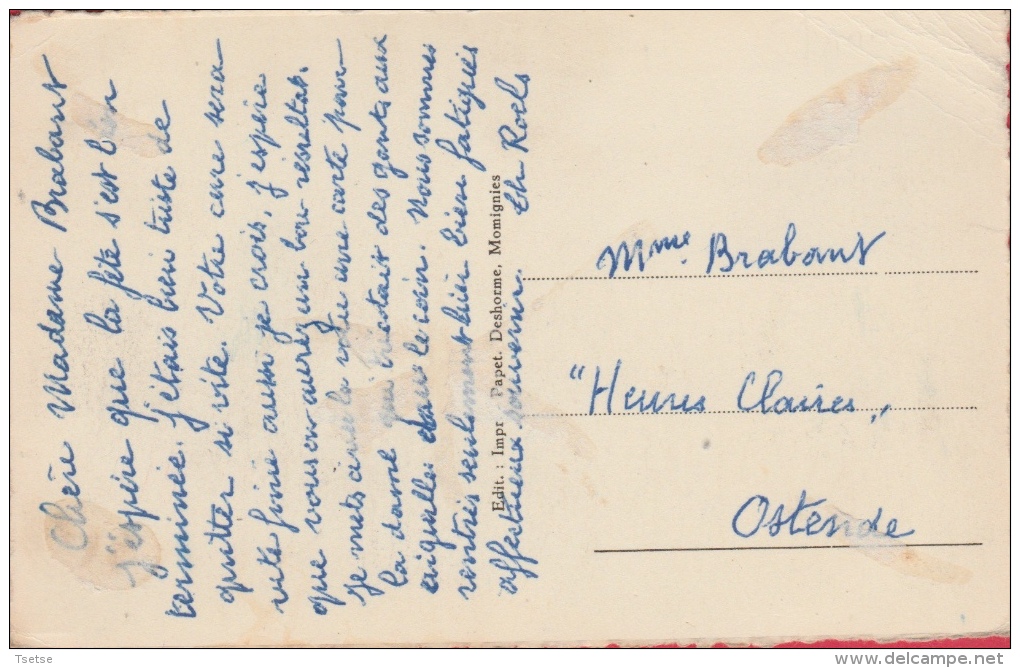 Chère Madame Brabant
j'espère que la fête s'est bien
terminée. j'étais bien triste de
quitter si vite. Votre cure sera
vite finie aussi je crois, j'espère
que vous en aurez un bon resultat.
je mets ci une carte pour
la dame qui des gants aux
dans le coin. Nous sommes
rentrés seulement hier bien fatigués
affectueux souvenir. Roels
Edit. : Impr Papet. Deshorme, Momignies
Mme. Brabant
"Heures Claires"
Ostende
Tsetse
delcampe.net